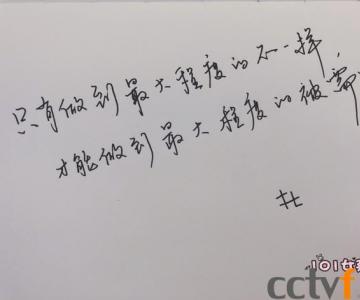 只有做到最大程度的不一样,
才能做到最大程度的被需
杜
101女
cctvf